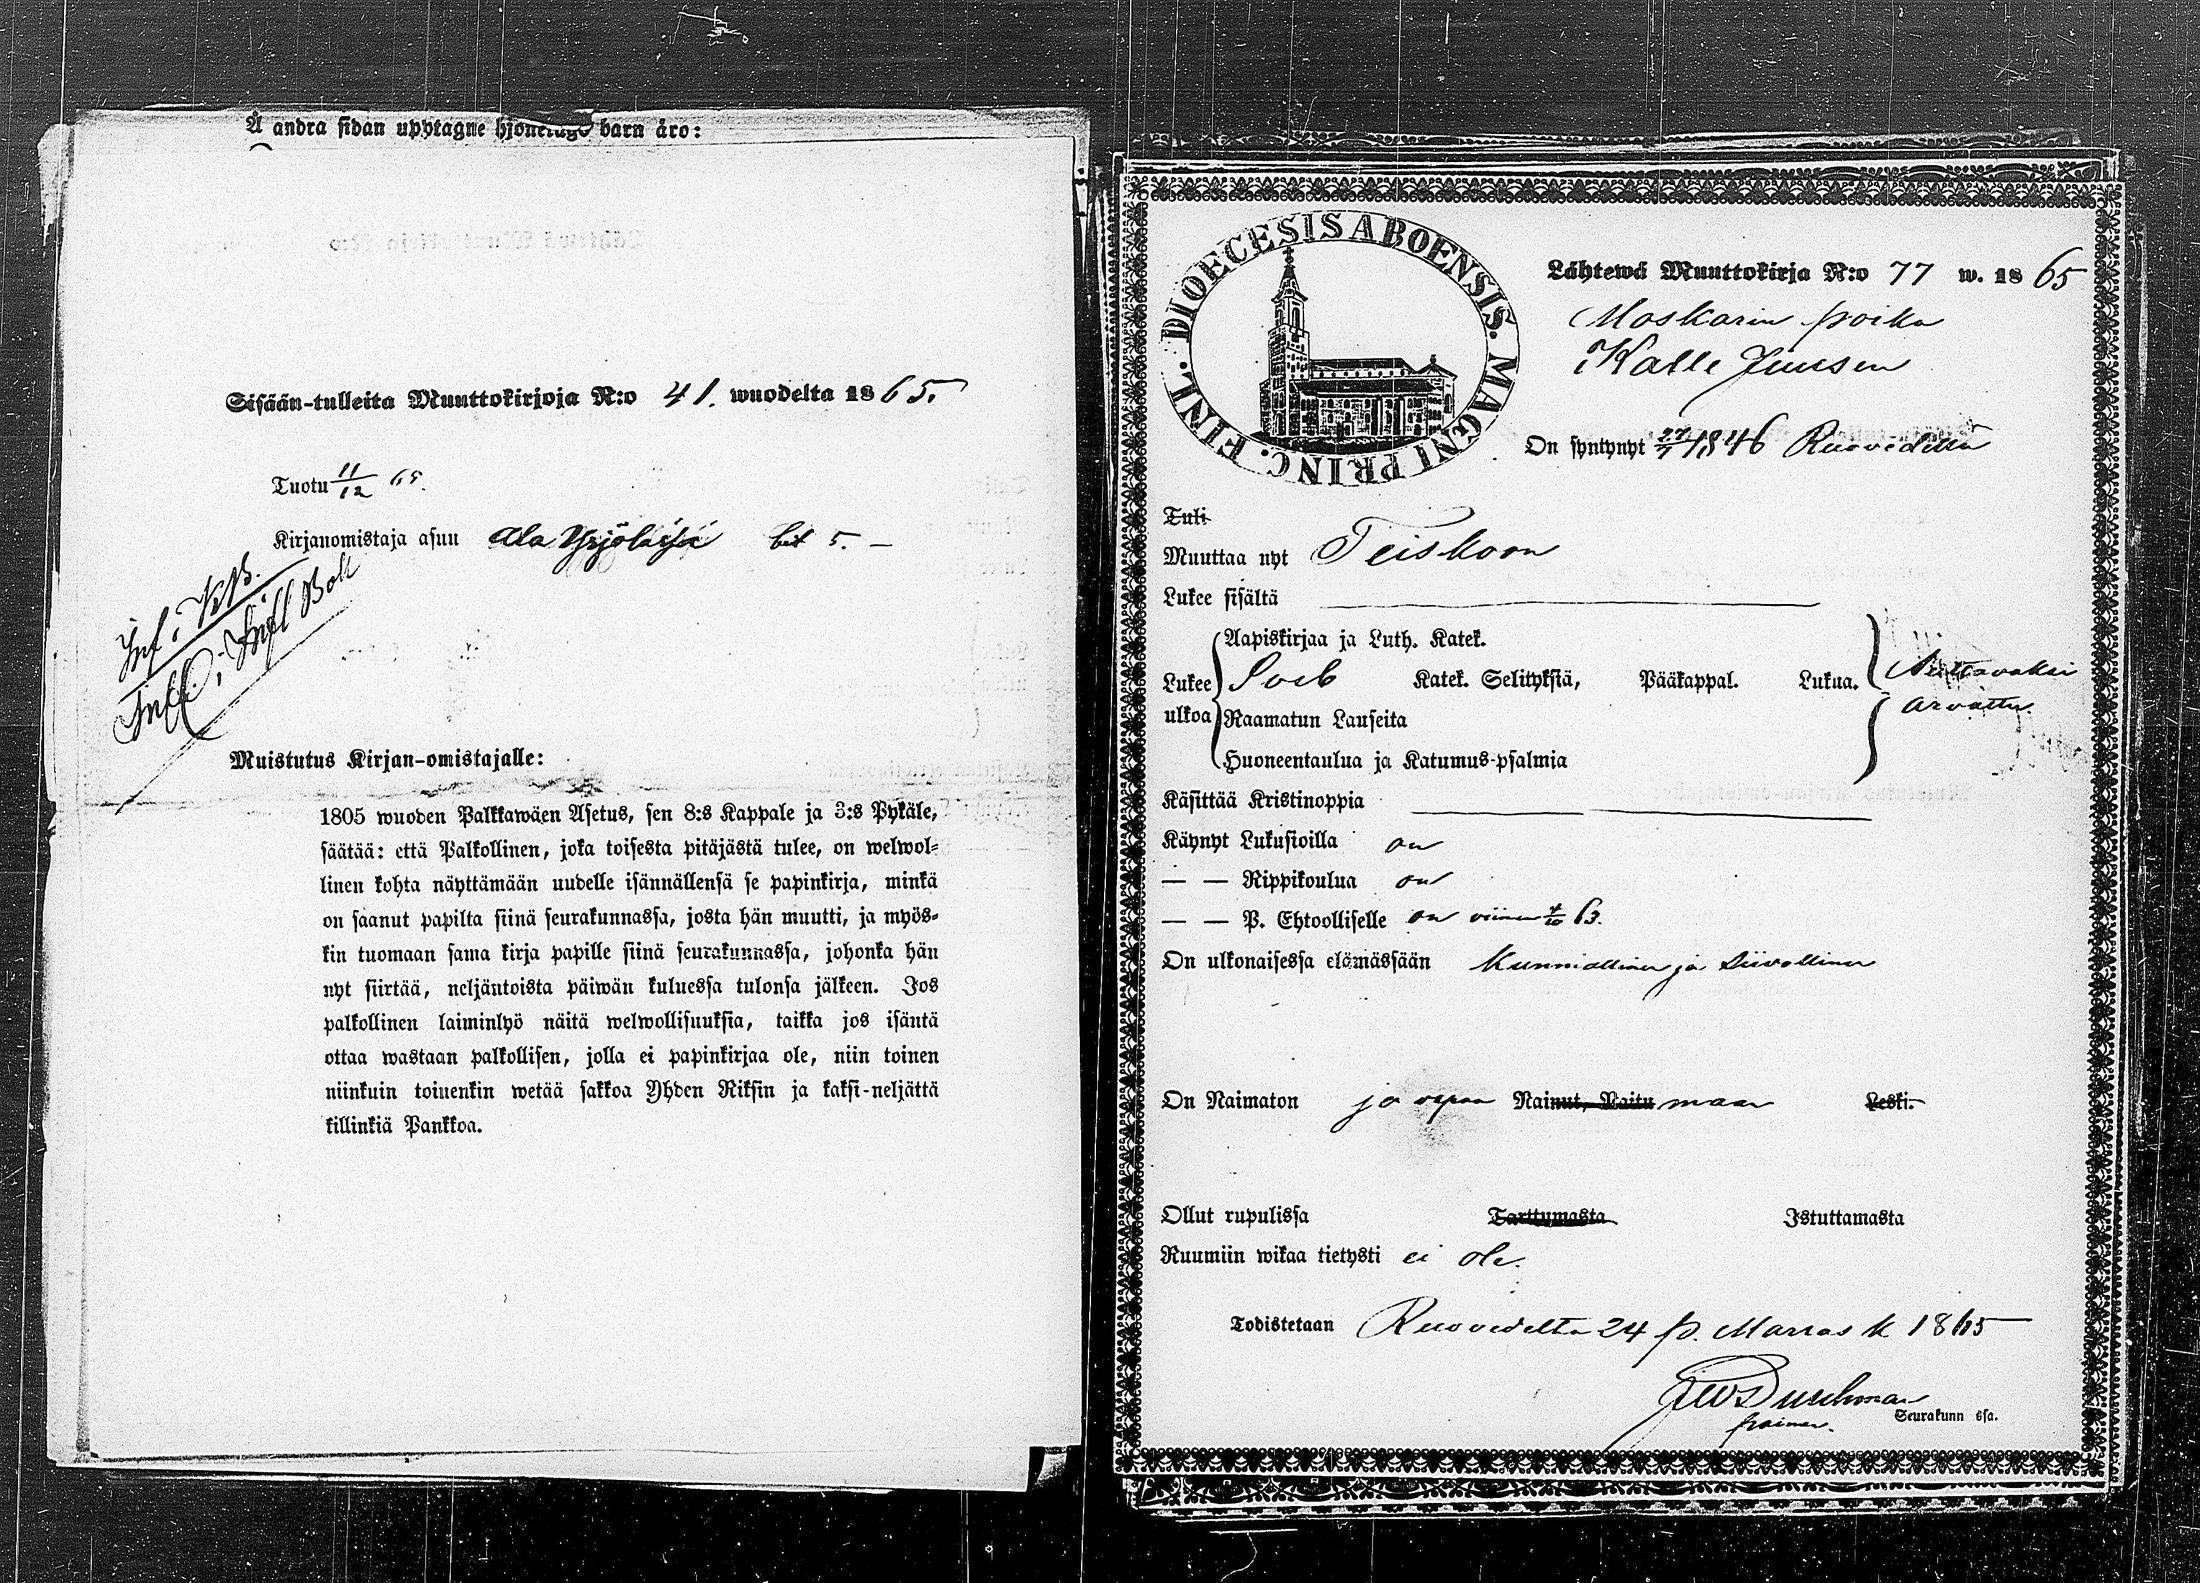 Å andra sidan upptagne hjonelags barn äro:
Sisään-tulleita Muuttokirjoja N:o 41. wuodelta 1865.
Tuotu 11/12 65.
Kirjanomistaja asuu Ala Yrjölässä 5. —
Inf. i KB.
Infl. i Infl Bok
Muistutus Kirjan-omistajalle:
1805 wuoden Palkkawäen Asetus, sen 8:s Kappale ja 3:s Pykäle,
säätää: että Palkollinen, joka toisesta pitäjästä tulee, on welwol-
linen kohta näyttämään uudelle isännällensä se papinkirja, minkä
on saanut papilta siinä seurakunnassa, josta hän muutti, ja myös-
kin tuomaan sama kirja papille siinä seurakunnassa, johonka hän
nyt siirtää, neljäntoista päiwän kuluessa tulonsa jälkeen. Jos
palkollinen laiminlyö näitä welwollisuuksia, taikka jos isäntä
ottaa wastaan palkollisen, jolla ei papinkirjaa ole, niin toinen
niinkuin toinenkin wetää sakkoa Yhden Riksin ja kaksi-neljättä
killinkiä Pankkoa.
DIOECESIS ABOENSIS. MAGNI PRINC. FINL.
Lähtewä Muuttokirja N:o 77 w. 1865
Maskarin poika
Kalle Juusen
On syntynyt 27/7 1846 Ruovedellä
Tuli
Muuttaa nyt Teiskoon
Lukee sisältä
Aapiskirjaa ja Luth. Katek.
Lukee ulkoa Katek. Selityksiä, Pääkappal. Lukua. Autettavaksi
Raamatun Lauseita arvattu.
Huoneentaulua ja Katumus-psalmia
Käsittää Kristinoppia
Käynyt Lukusioilla on
— — Rippikoulua on
— — P. Ehtoolliselle on viimen 4/10 63.
On ulkonaisessa elämässään kunniallinen ja siivollinen
On Naimaton ja vapaa Nainut, Naitu maan Leski.
Ollut rupulissa Tarttumasta Istuttamasta
Ruumiin wikaa tietysti ei ole.
Todistetaan Ruovedeltä 24 p. Marras k 1865
Durchman
Seurakunn ssa.